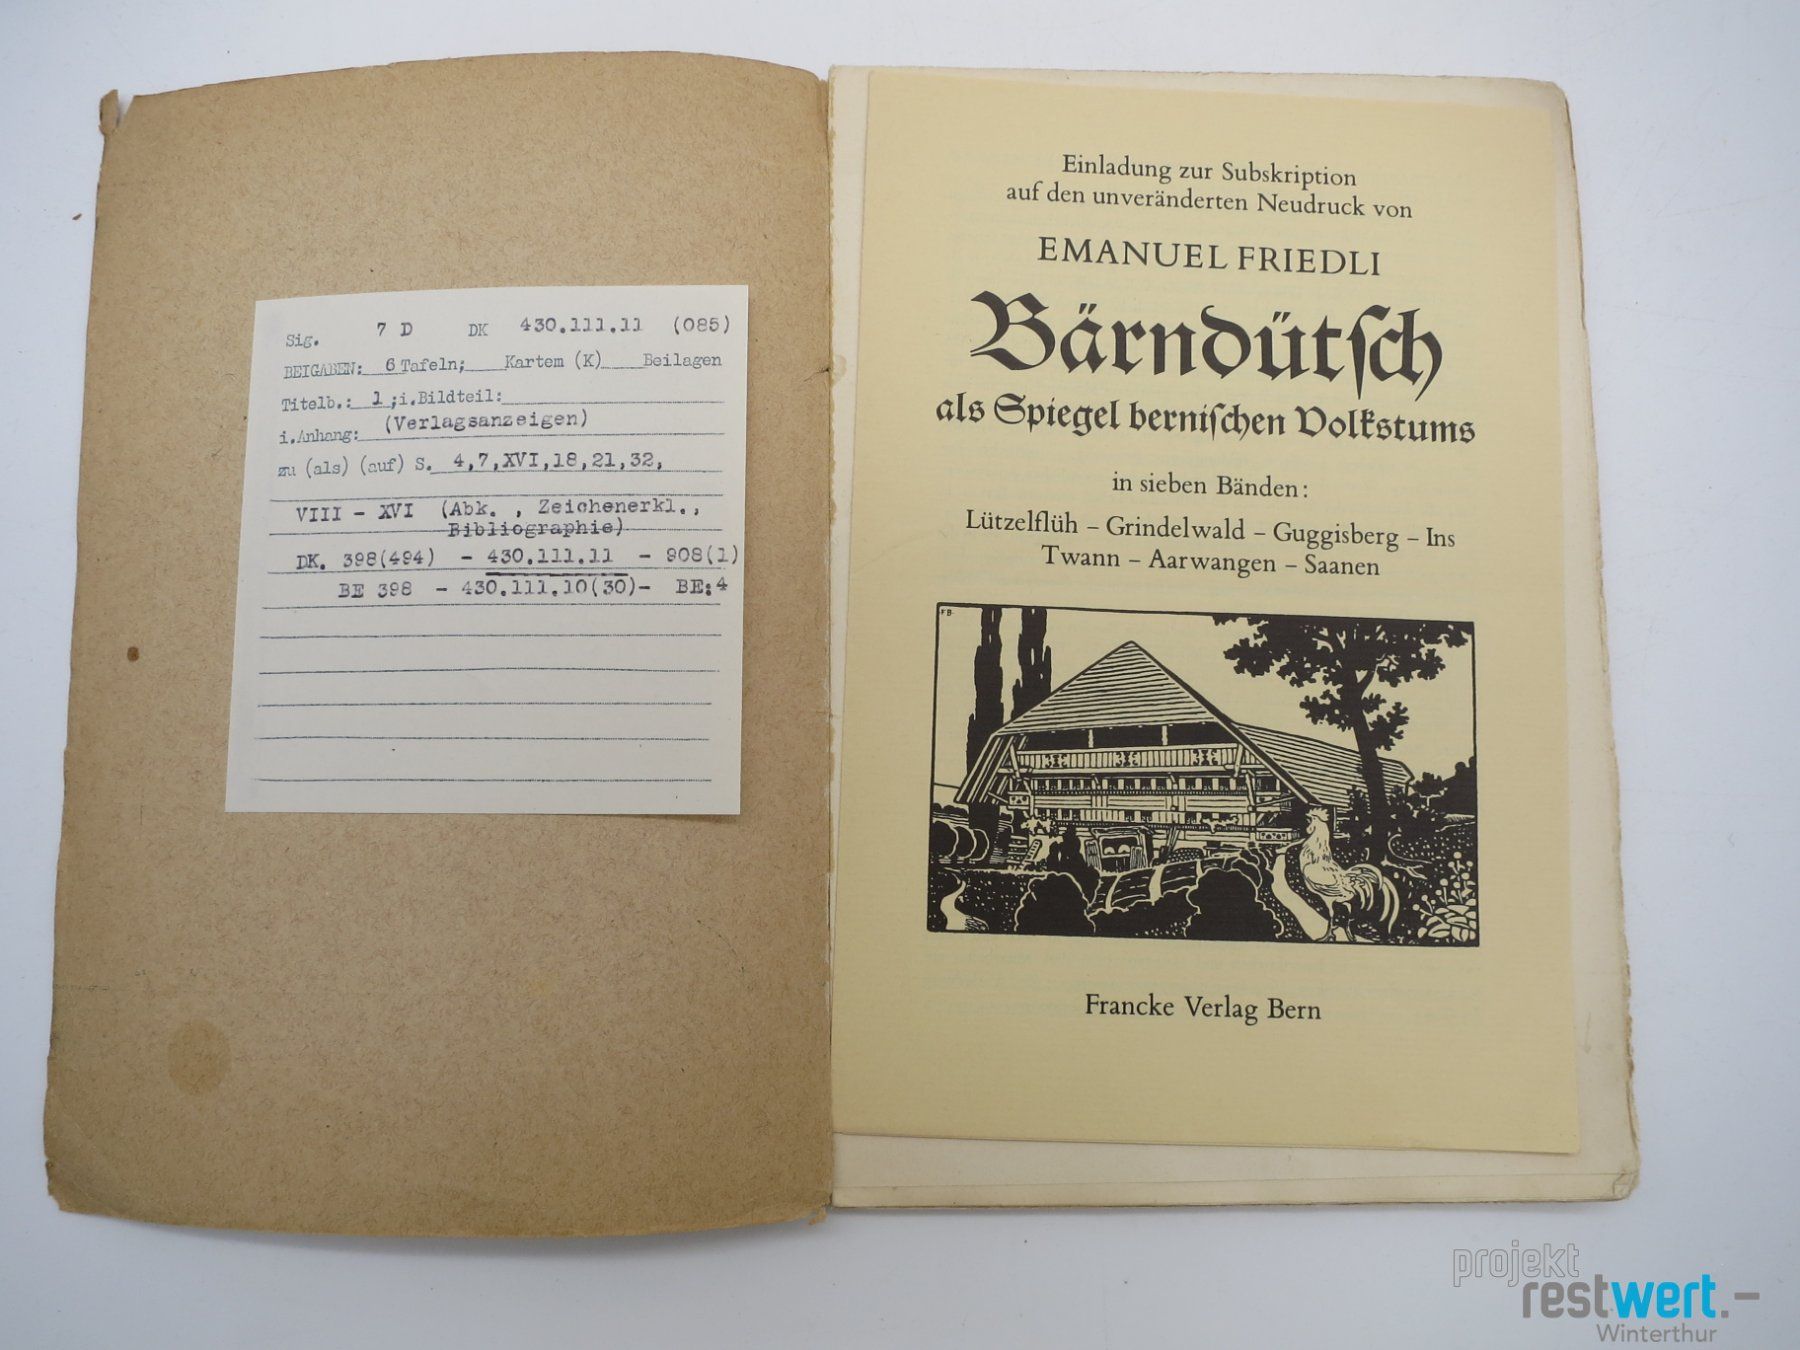 Sig. 7 D DK 430.111.11 (085)
BEIGABEN: 6 Tafeln; Kartem (K) Beilagen
Titelb.: 1 ;i.Bildteil:
i.Anhang: (Verlagsanzeigen)
zu (als) (auf) S. 4,7,XVI,18,21,32,
VIII - XVI (Abk. , Zeichenerkl.,
Bibliographie)
DK. 398(494) - 430.111.11 - 908(1)
BE 398 - 430.111.10(30)- BE:4
Einladung zur Subskription
auf den unveränderten Neudruck von
EMANUEL FRIEDLI
Bärndütſch
als Spiegel berniſchen Volkstums
in sieben Bänden:
Lützelflüh – Grindelwald – Guggisberg – Ins
Twann – Aarwangen – Saanen
FB
Francke Verlag Bern
projekt
restwert.–
Winterthur